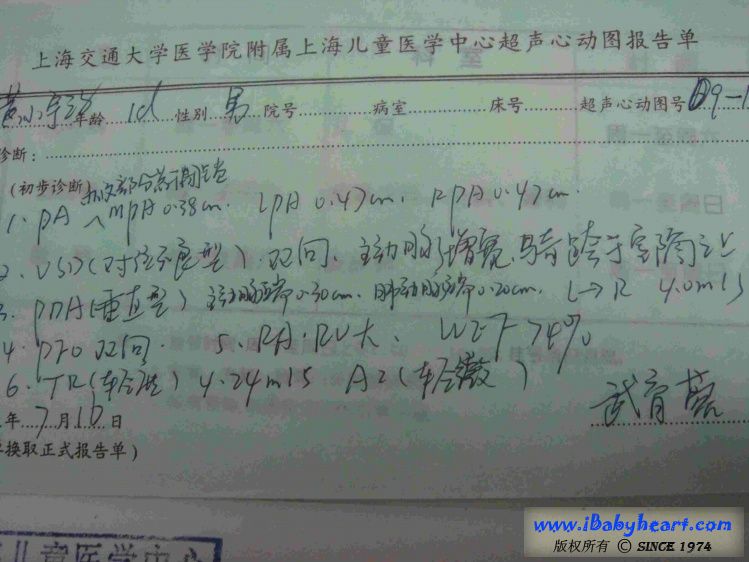 上海交通大学医学院附属上海儿童医学中心超声心动图报告单
年龄 1d 性别 男 院号 病室 床号 超声心动图号 09-1
诊断:
(初步诊断)
1. PA MPA 0.38cm. LPA 0.47cm. RPA 0.47cm.
2. VSD(对位不良型) 双向. 主动脉增宽, 骑跨于室隔之上
3. PDA(垂直型) 主动脉端 0.30cm. 肺动脉端 0.20cm. L→R 4.0m/s
4. PFO 双向. 5. RA. RV大. LVEF 74%
6. TR(轻度) 4.24m/s AI(轻微)
年 7 月 10 日
换取正式报告单)
儿童医学中心
www.iBabyheart.com
版权所有 © SINCE 1974